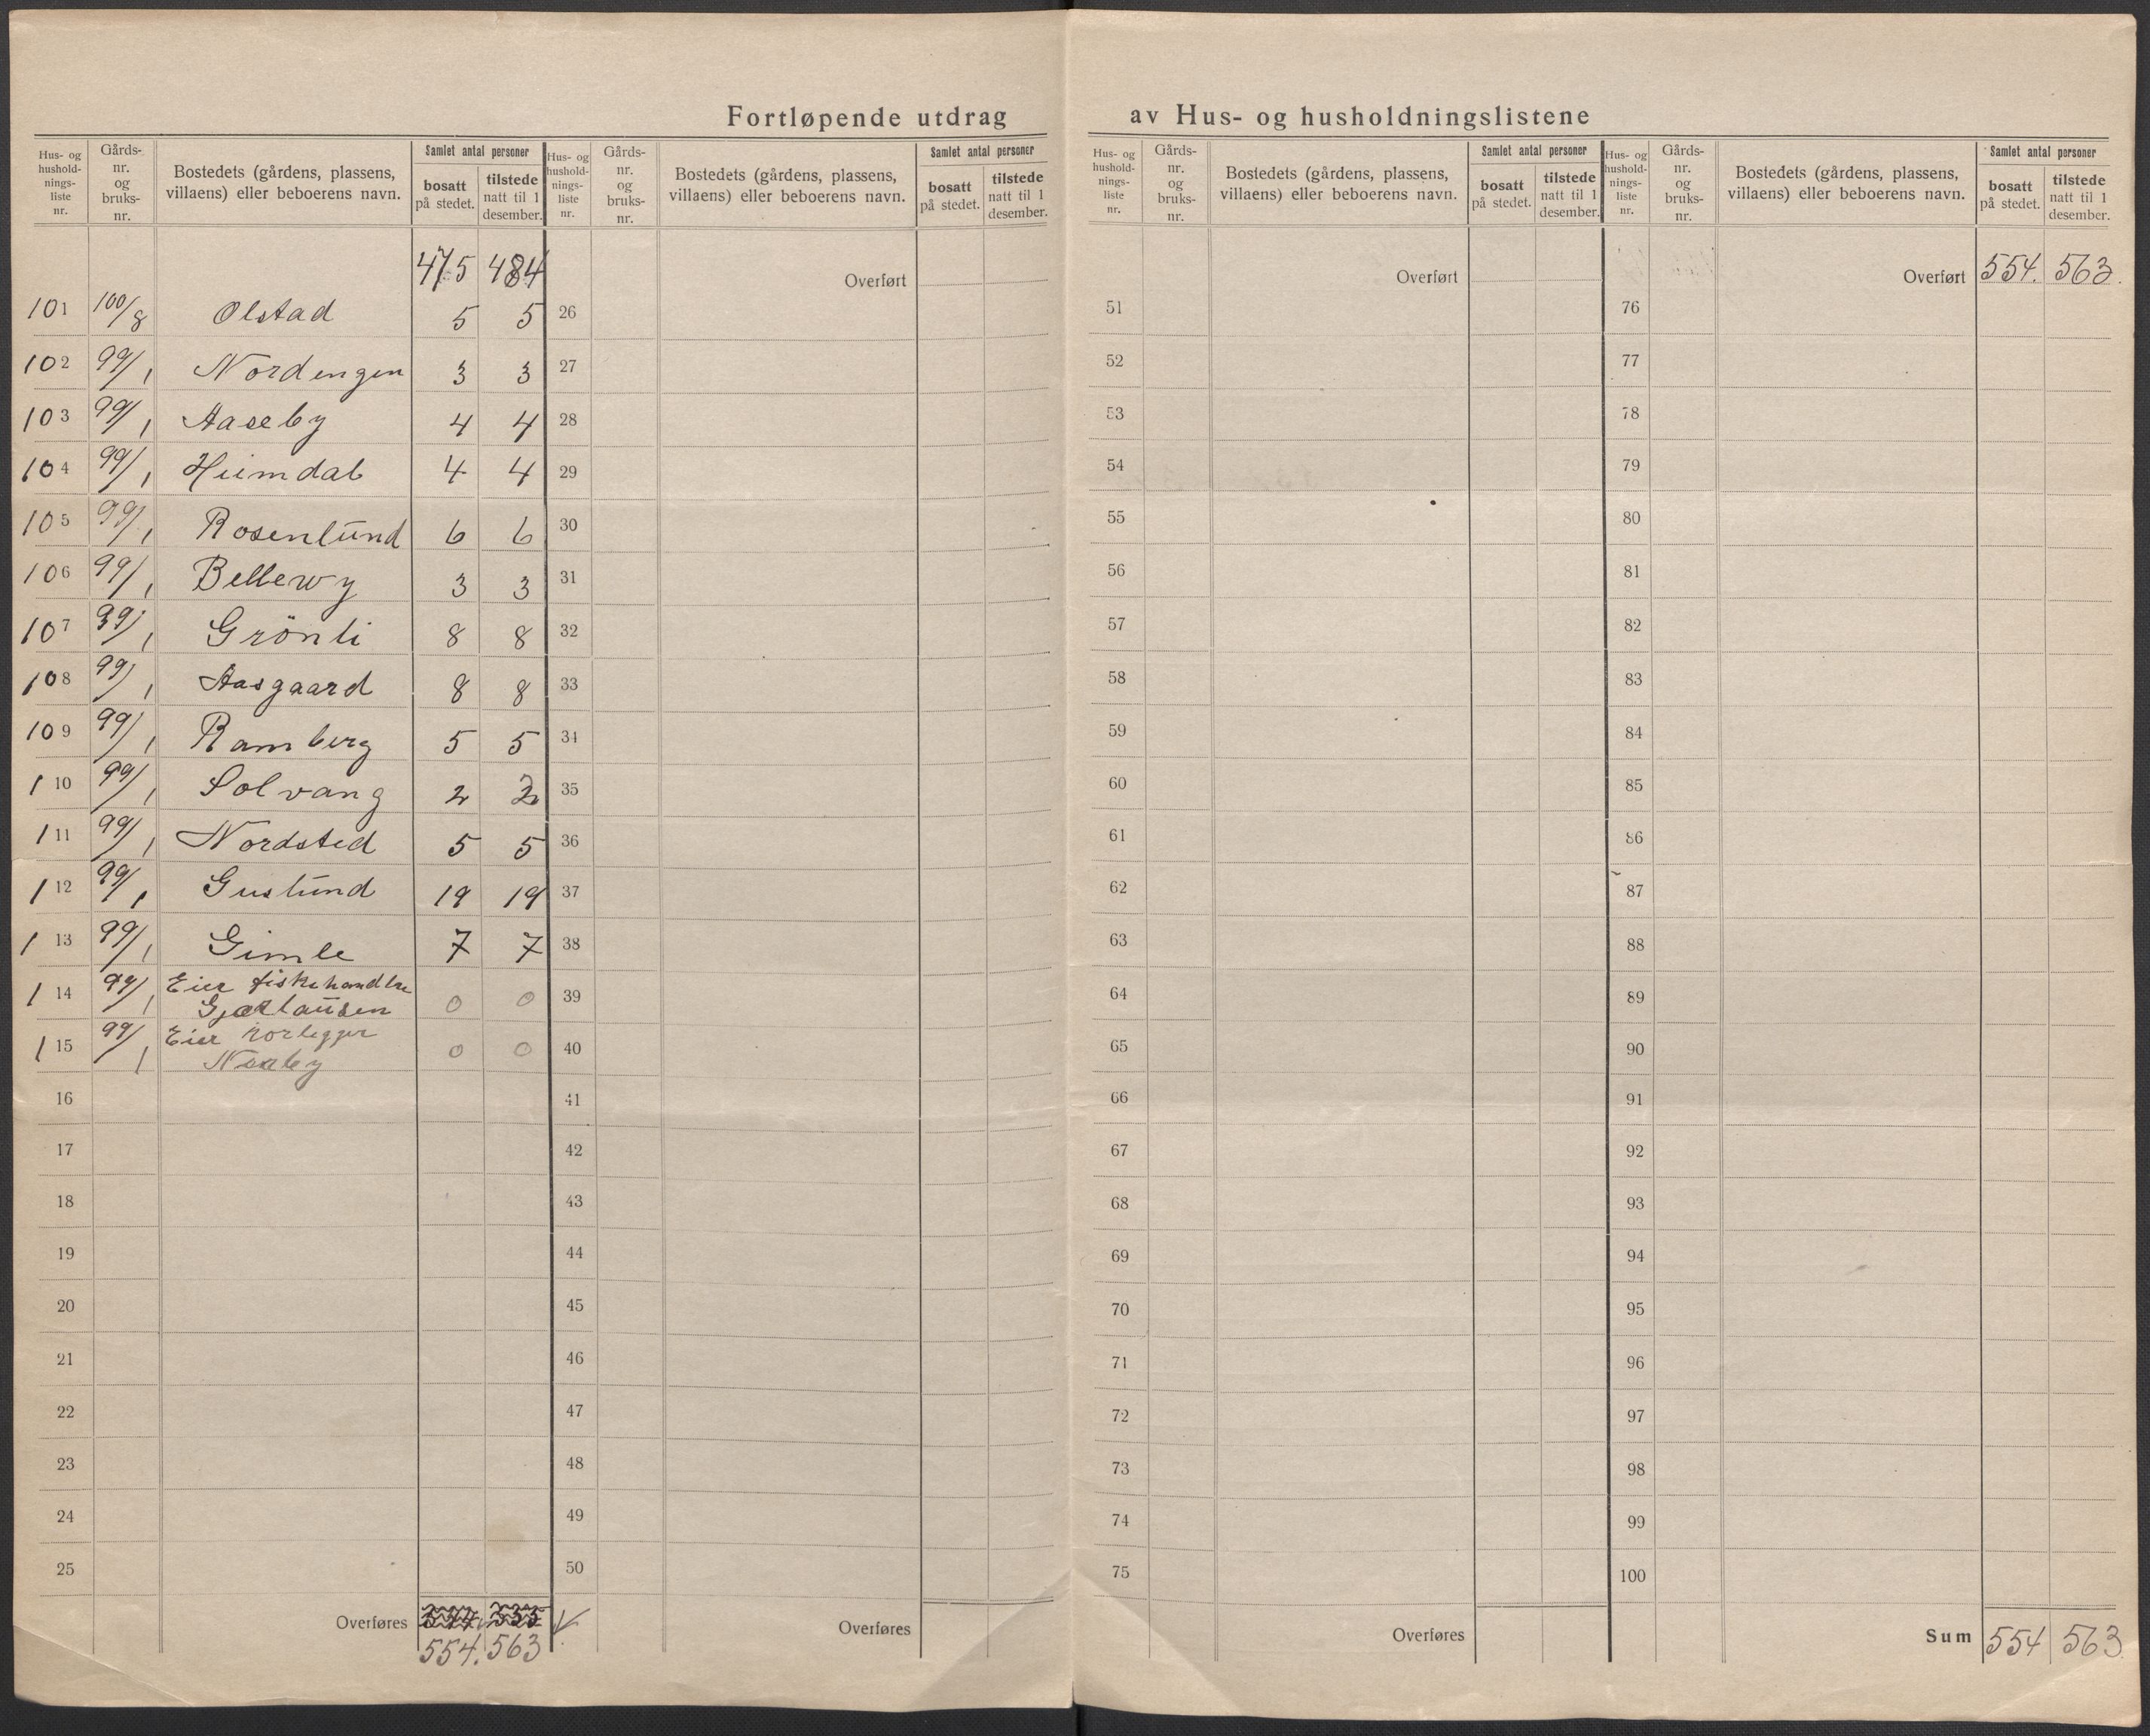 Fortløpende utdrag av Hus- og husholdningslistene
Hus- og hushold-nings-liste nr. | Gårds-nr. og bruks-nr. | Bostedets (gårdens, plassens, villaens) eller beboerens navn. | Samlet antal personer | bosatt på stedet. | tilstede natt til 1 desember.
475 484
101 100/8 Olstad 5 5
102 99/1 Nordengen 3 3
103 99/1 Aaseby 4 4
104 99/1 Heimdal 4 4
105 99/1 Rosenlund 6 6
106 99/1 Bellevy 3 3
107 99/1 Grönli 8 8
108 99/1 Aasgaard 8 8
109 99/1 Ramberg 5 5
110 99/1 Solvang 2 2
111 99/1 Nordsted 5 5
112 99/1 Guslund 19 19
113 99/1 Gimle 7 7
114 99/1 Eier fiskehandler
0 0
115 99/1 Eier rorlegger
Næsby 0 0
16
17
18
19
20
21
22
23
24
25
Overføres
554. 563
Hus- og hushold-nings-liste nr. | Gårds-nr. og bruks-nr. | Bostedets (gårdens, plassens, villaens) eller beboerens navn. | Samlet antal personer | bosatt på stedet. | tilstede natt til 1 desember.
Overført
26
27
28
29
30
31
32
33
34
35
36
37
38
39
40
41
42
43
44
45
46
47
48
49
50
Overføres
Hus- og hushold-nings-liste nr. | Gårds-nr. og bruks-nr. | Bostedets (gårdens, plassens, villaens) eller beboerens navn. | Samlet antal personer | bosatt på stedet. | tilstede natt til 1 desember.
Overført
51
52
53
54
55
56
57
58
59
60
61
62
63
64
65
66
67
68
69
70
71
72
73
74
75
Overføres
Hus- og hushold-nings-liste nr. | Gårds-nr. og bruks-nr. | Bostedets (gårdens, plassens, villaens) eller beboerens navn. | Samlet antal personer | bosatt på stedet. | tilstede natt til 1 desember.
Overført 554. 563.
76
77
78
79
80
81
82
83
84
85
86
87
88
89
90
91
92
93
94
95
96
97
98
99
100
Sum 554 563